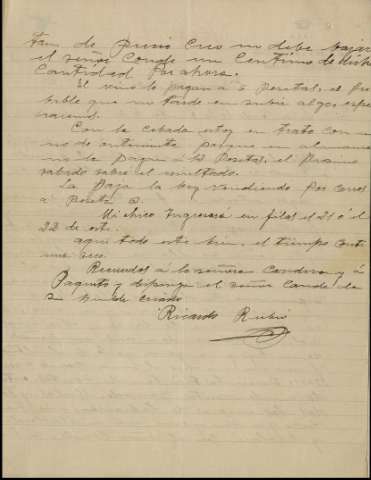 de precio creo no debe bajar
el señor Conde un Centimo de dicha
Cantidad Por ahora.
El vino lo pagan a 5 Pesetas, el pro
bable que no tarde en subir algo, espe
raremos.
Con la Cebada estoy en trato con u
no de onteniente porque en almansa
no la pagan a Pesetas, el Proximo
sabado sabre el resultado.
La Paja la boy vendiendo por carros
a Peseta
Mi chico Ingresará en filas el 21 ó el
22 de este.
aqui todo este bien, el tiempo conti
nua seco.
Recuerdos a la señora Condesa y a
Paquito y disponga el señor Conde de
su humilde criado
Ricardo Rubio